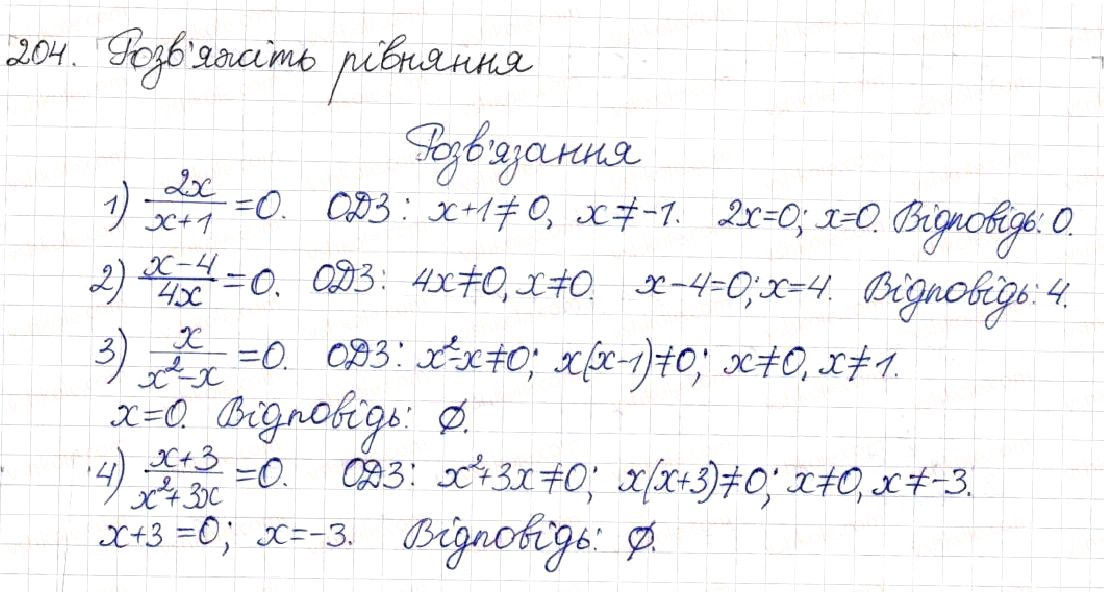 204. Розв'яжіть рівняння
Розв'язання
1) 2x/(x+1) = 0. ОДЗ: x+1≠0, x≠-1. 2x=0; x=0. Відповідь: 0.
2) (x-4)/4x = 0. ОДЗ: 4x≠0, x≠0. x-4=0; x=4. Відповідь: 4.
3) x/(x²-x) = 0. ОДЗ: x²-x≠0; x(x-1)≠0; x≠0, x≠1.
x=0. Відповідь: Ø.
4) (x+3)/(x²+3x) = 0. ОДЗ: x²+3x≠0; x(x+3)≠0; x≠0, x≠-3.
x+3=0; x=-3. Відповідь: Ø.